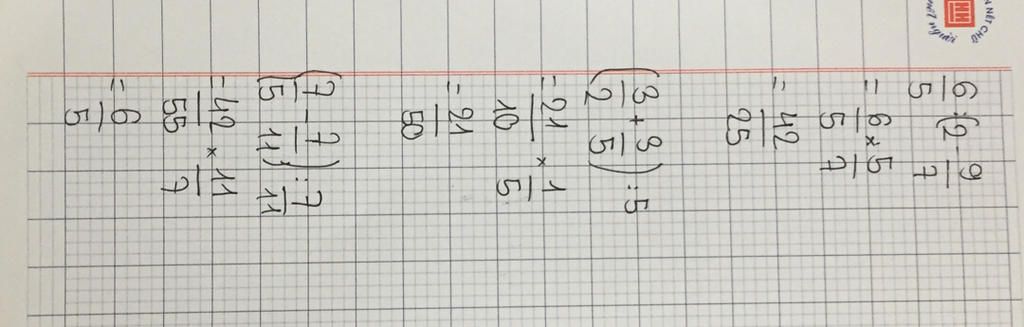 NÉT CHỮ
người
6/5 : (2 - 9/7)
= 6/5 × 5/7
= 42/25
(3/2 + 3/5) : 5
= 21/10 × 1/5
= 21/50
(7/5 - 7/11) : 7/11
= 42/55 × 11/7
= 6/5